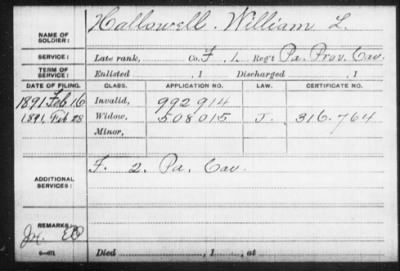 NAME OF SOLDIER: Hallowell, William L.
SERVICE: Late rank, Co. F, 1 Reg't Pa. Prov. Cav.
TERM OF SERVICE: Enlisted , 1 Discharged , 1
DATE OF FILING. CLASS. APPLICATION NO. LAW. CERTIFICATE NO.
1891 Feb 16 Invalid, 992914
1891, Feb 28 Widow, 508015 J. 316.764
Minor,
ADDITIONAL SERVICES: F. 2. Pa. Cav.
REMARKS:
Died , 1 , at